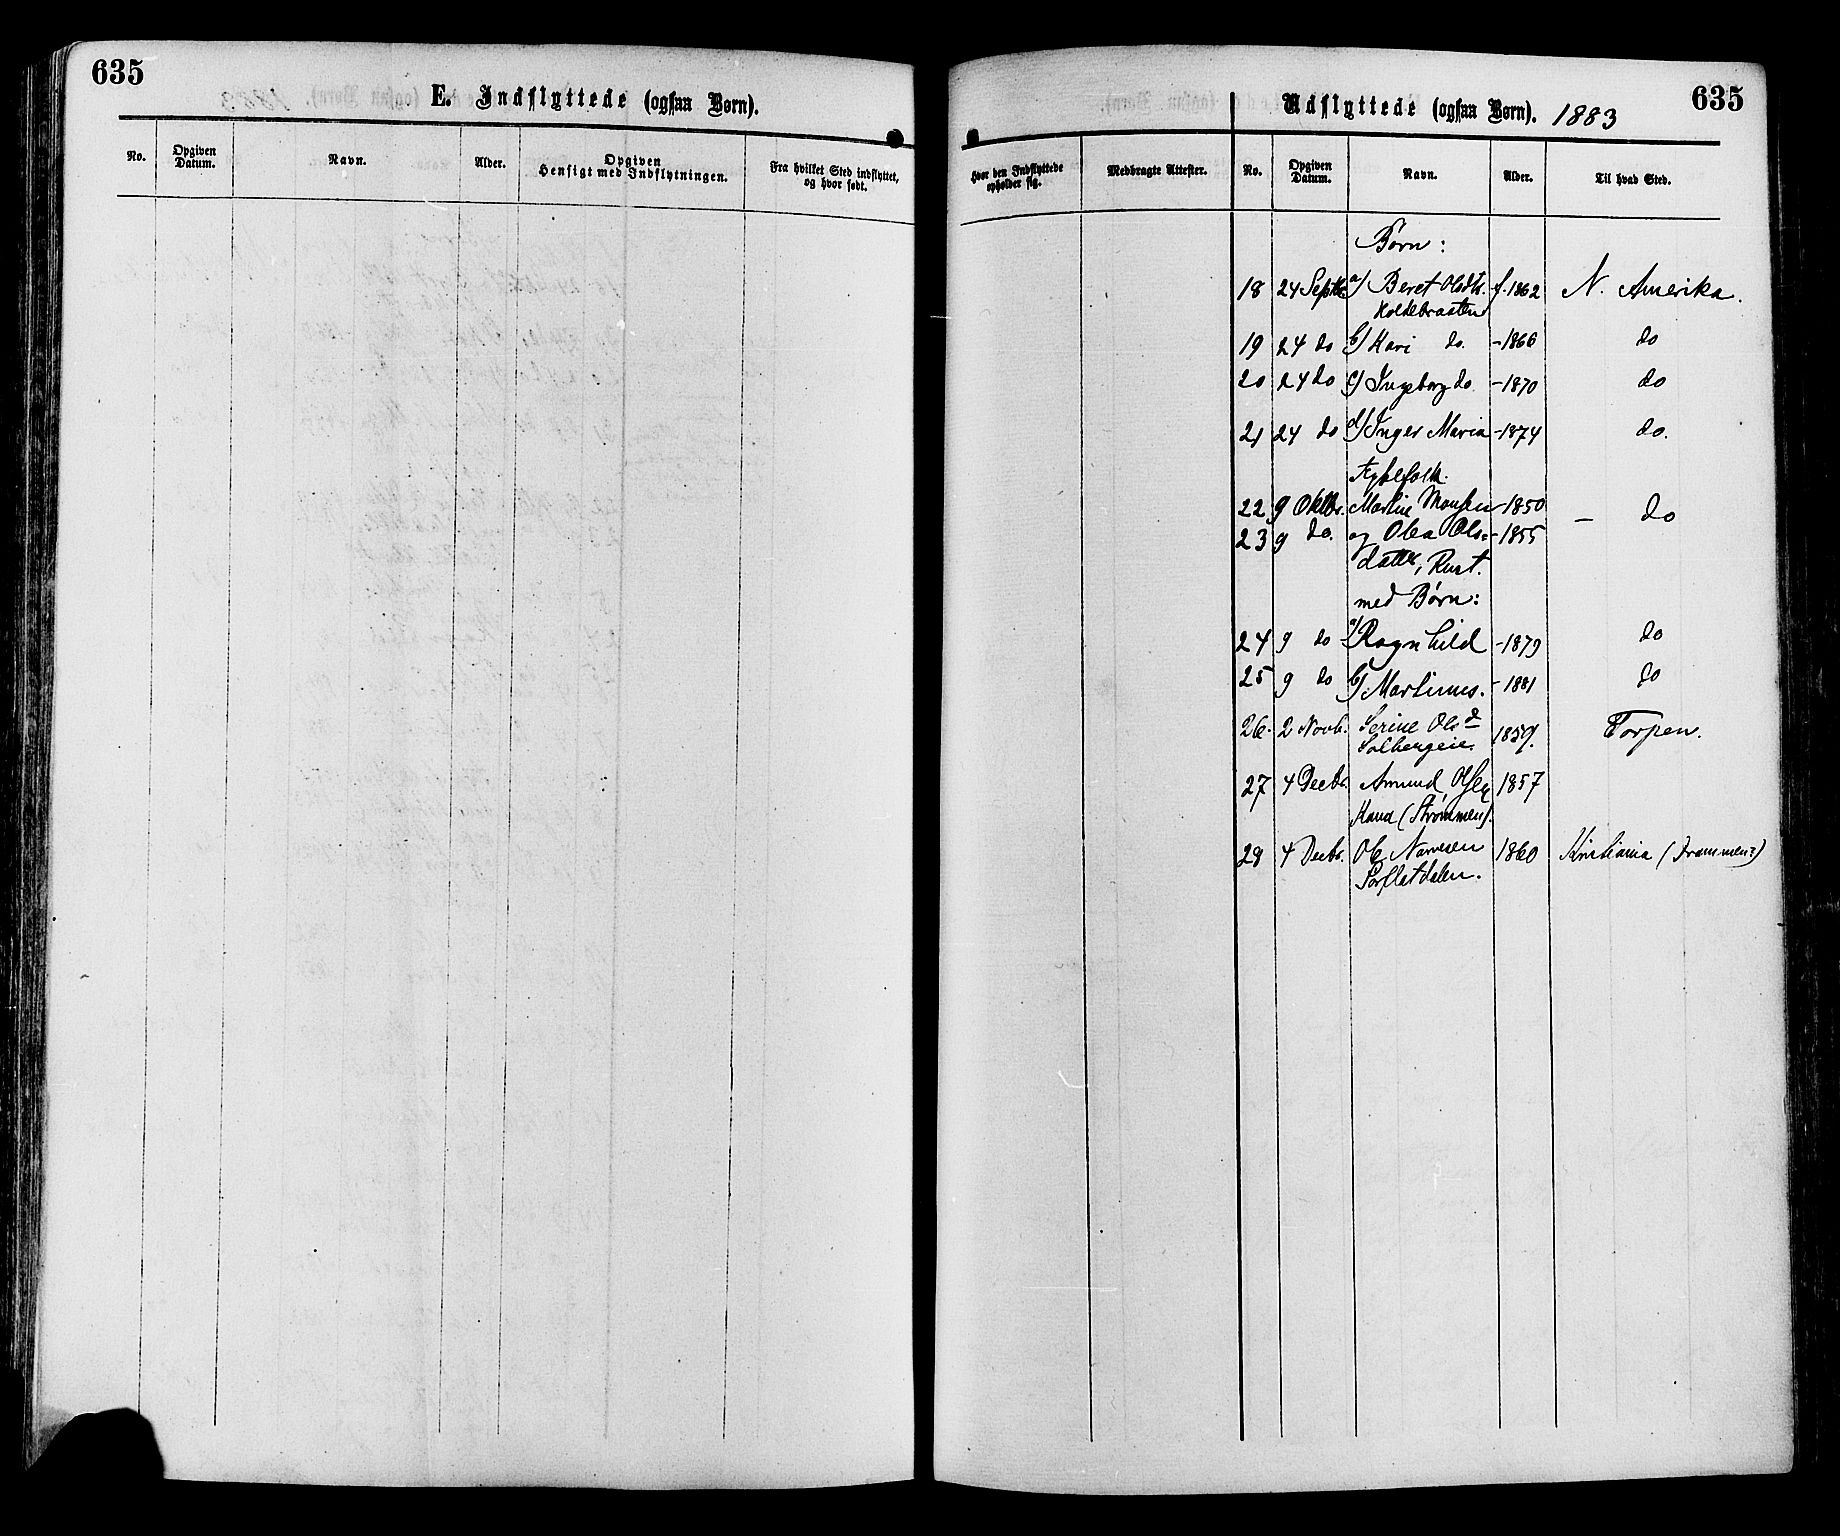 635
E. Indflyttede (ogsaa Børn).
No.
Opgiven Datum.
Navn.
Alder.
Opgiven Hensigt med Indflytningen.
Fra hvilket Sted indflyttet, og hvor født.
Udflyttede (ogsaa Børn). 1883
635
Hvor den Indflyttede opholder sig.
Medbragte Attester.
No.
Opgiven Datum.
Navn.
Alder.
Til hvad Sted.
Børn:
18 24 Septbr a/ Beret Olsdtr. f. 1862 N. Amerika.
Holdebraaten
19 24 do b/ Kari do. -1866 do
20 24 do c/ Ingeborg do -1870 do
21 24 do d/ Inger Maria -1874 do.
Ægtefolk.
22 9 Oktbr. Martin Monsen -1850 – do
23 9 do. og Olea Ols= -1855
datter, Rust.
med Børn:
24 9 do a/ Ragnhild -1879 do
25 9 do b/ Martinus. -1881 do
26. 2 Novb. Serine Olsd 1859. Torpen.
Solbergeie
27 4 Decbr. Amund Olsen 1857
(Strømmen).
28 4 Decbr. Ole 1860 Kristiania (Drammen?)